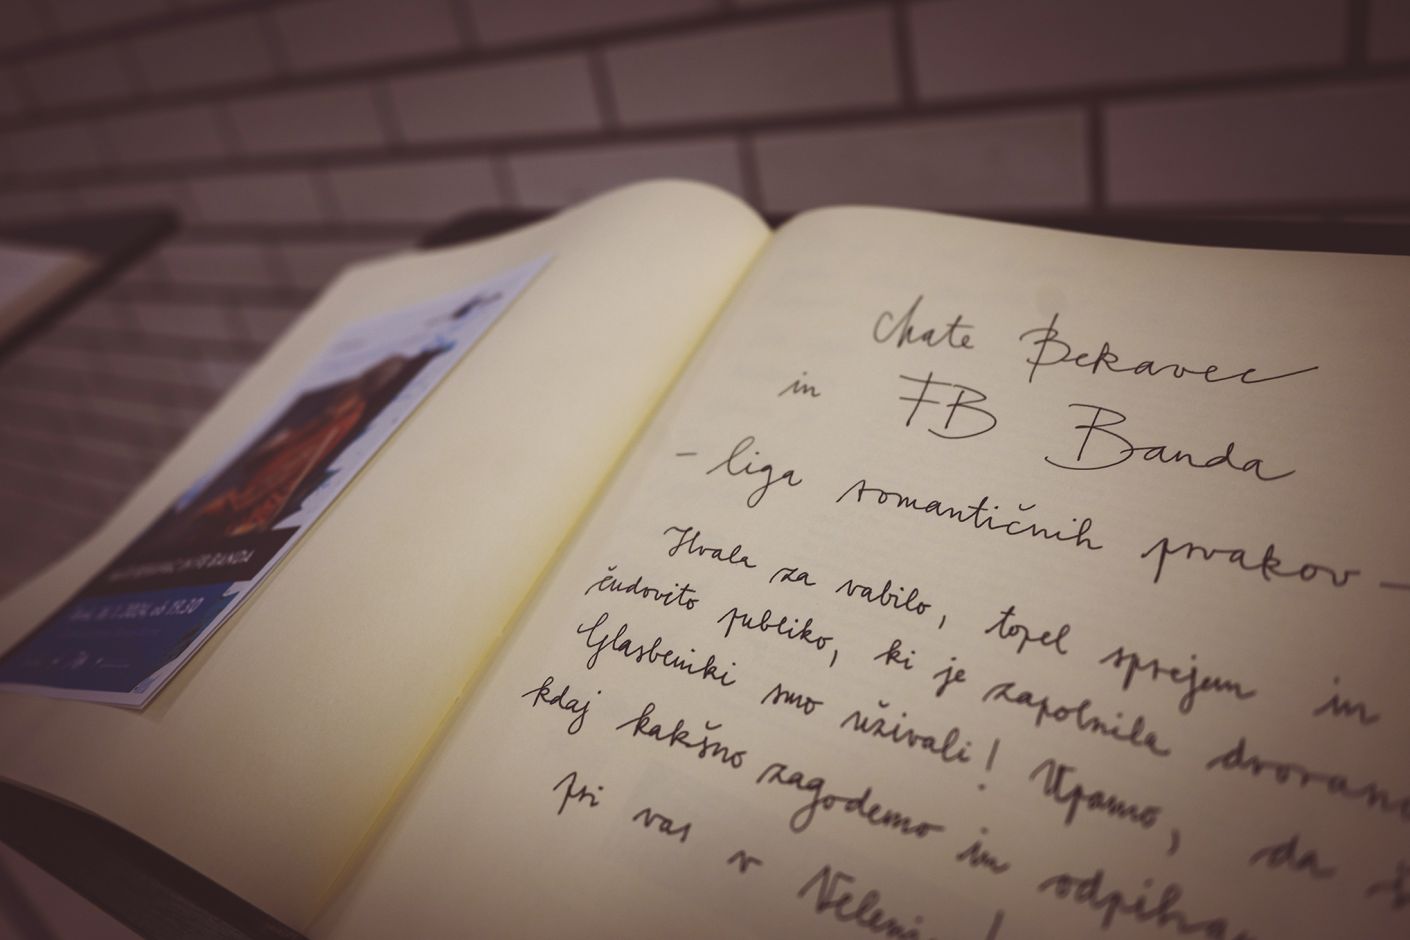 Mate Bekavec
in FB Banda
– liga romantičnih prvakov –
Hvala za vabilo, topel sprejem in
čudovito publiko, ki je zapolnila dvorano
Glasbeniki smo uživali! Upamo, da
kdaj kakšno zagodemo in
pri vas v
BANDA
19.30